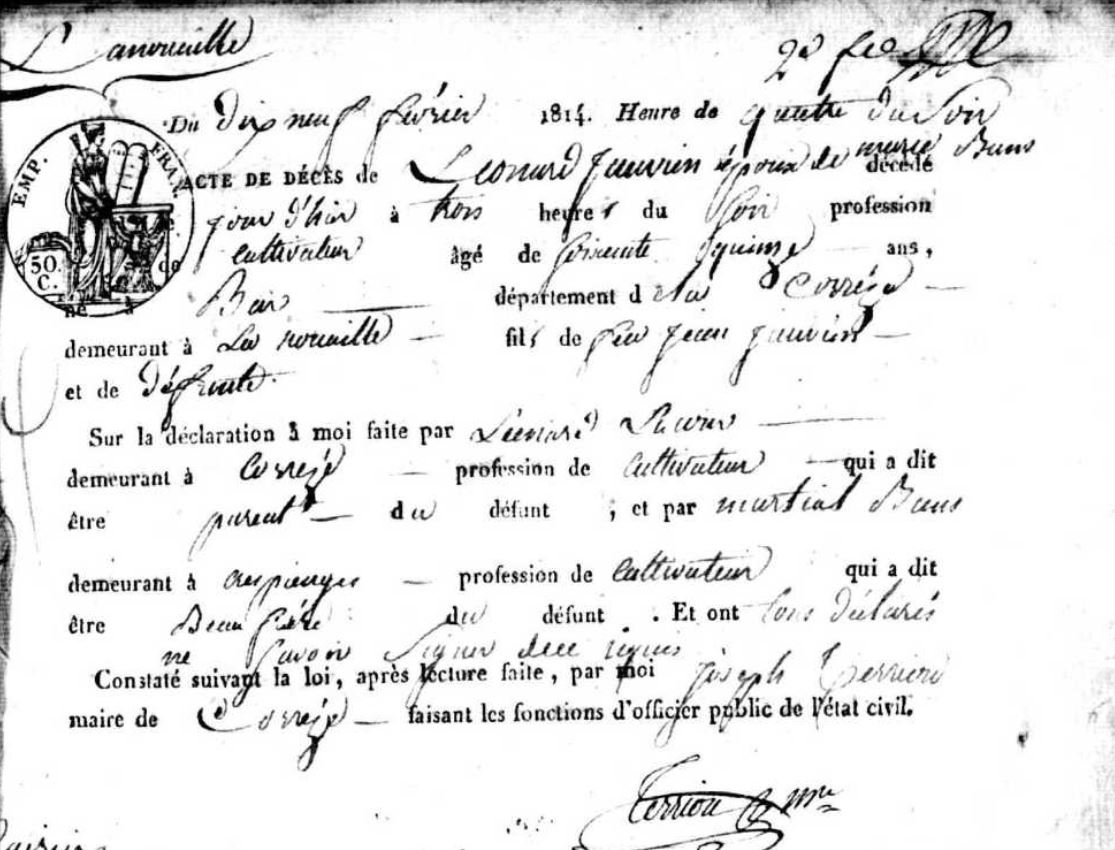 Lanouaille
2d fco
EMP. FRAN.
50. C.
Du dix neuf fevrier 1814. Heure de quatre du Soir
ACTE DE DÉCÈS de Leonard Janvier époux de marie Bans décédé
le jour d'hier à trois heures du Soir profession
de cultivateur âgé de soisante quinze ans,
né à Bar département de la Corrèze
demeurant à La nouaille fils de feu jean janvier
et de défunte
Sur la déclaration à moi faite par Léonard
demeurant à Correze profession de cultivateur qui a dit
être parent du défunt ; et par martial Bans
demeurant à profession de cultivateur qui a dit
être Beau frère du défunt . Et ont tous déclarés
ne savoir signer
Constaté suivant la loi, après lecture faite, par moi joseph Terriou
maire de Correze faisant les fonctions d'officier public de l'état civil.
Terriou mre